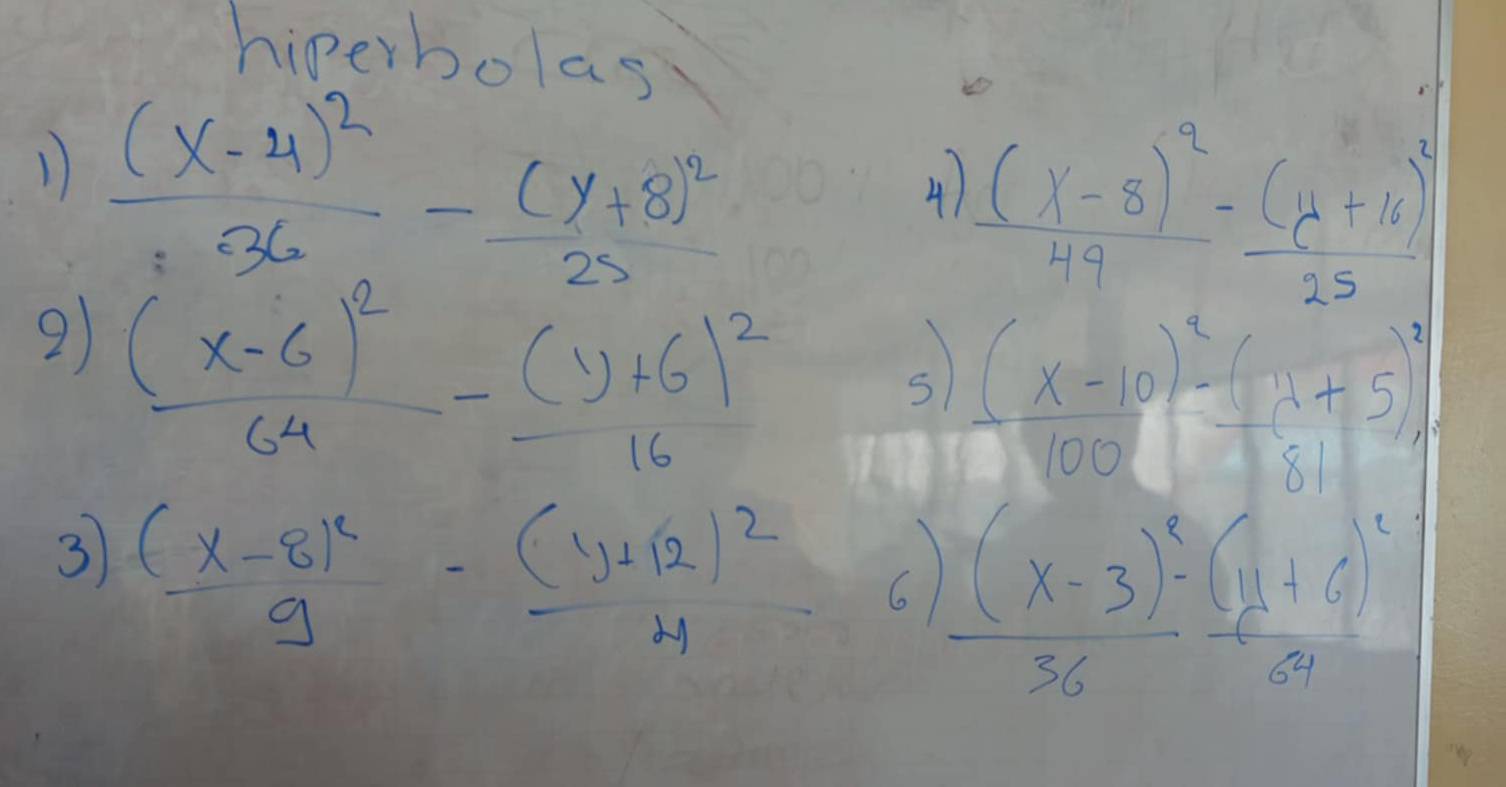 hiperbolas
1) (x-4)²/36 - (y+8)²/25
2) (x-6)²/64 - (y+6)²/16
3) (x-8)²/9 - (y+12)²/4
4) (x-8)²/49 - (y+16)²/25
5) (x-10)²/100 - (y+5)²/81
6) (x-3)²/36 - (y+6)²/64